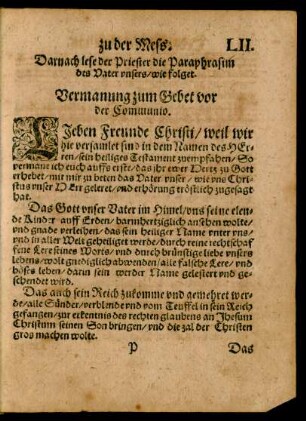 zu der Mess. LII.
Darnach lese der Priester die Paraphrasim
des Vater vnsers/wie folget.
Vermanung zum Gebet vor
der Communio.
LJeben Freunde Christi/ weil wir
hie versamlet sind in dem Namen des HEr-
ren/sein heiliges Testament zuempfahen/ So
vermane ich euch auffs erste/ das ihr ewer Hertz zu Gott
erhebet/ mit mir zu beten das Vater vnser/ wie vns Chri-
stus vnser HErr geleret/ vnd erhörung tröstlich zugesagt
hat.
Das Gott vnser Vater im Himel/vns seine elen-
de Kinder auff Erden/ barmhertziglich ansehen wolte/
vnd gnade verleihen/ das sein heiliger Name vnter vns/
vnd in aller Welt geheiliget werde/durch reine rechtschaf-
fene Lere seines Worts/ vnd durch brünstige liebe vnsers
lebens/ wolt gnediglich abwenden/ alle falsche Lere/ vnd
böses leben/ darin sein werder Name gelestert vnd ge-
schendet wird.
Das auch sein Reich zukomme vnd gemehret wer-
de/alle Sünder/ verblendte vnd vom Teuffel in sein Reich
gefangen/ zur erkentnis des rechten glaubens an Jhesum
Christum seinen Son bringen/ vnd die zal der Christen
gros machen wolte.
P Das